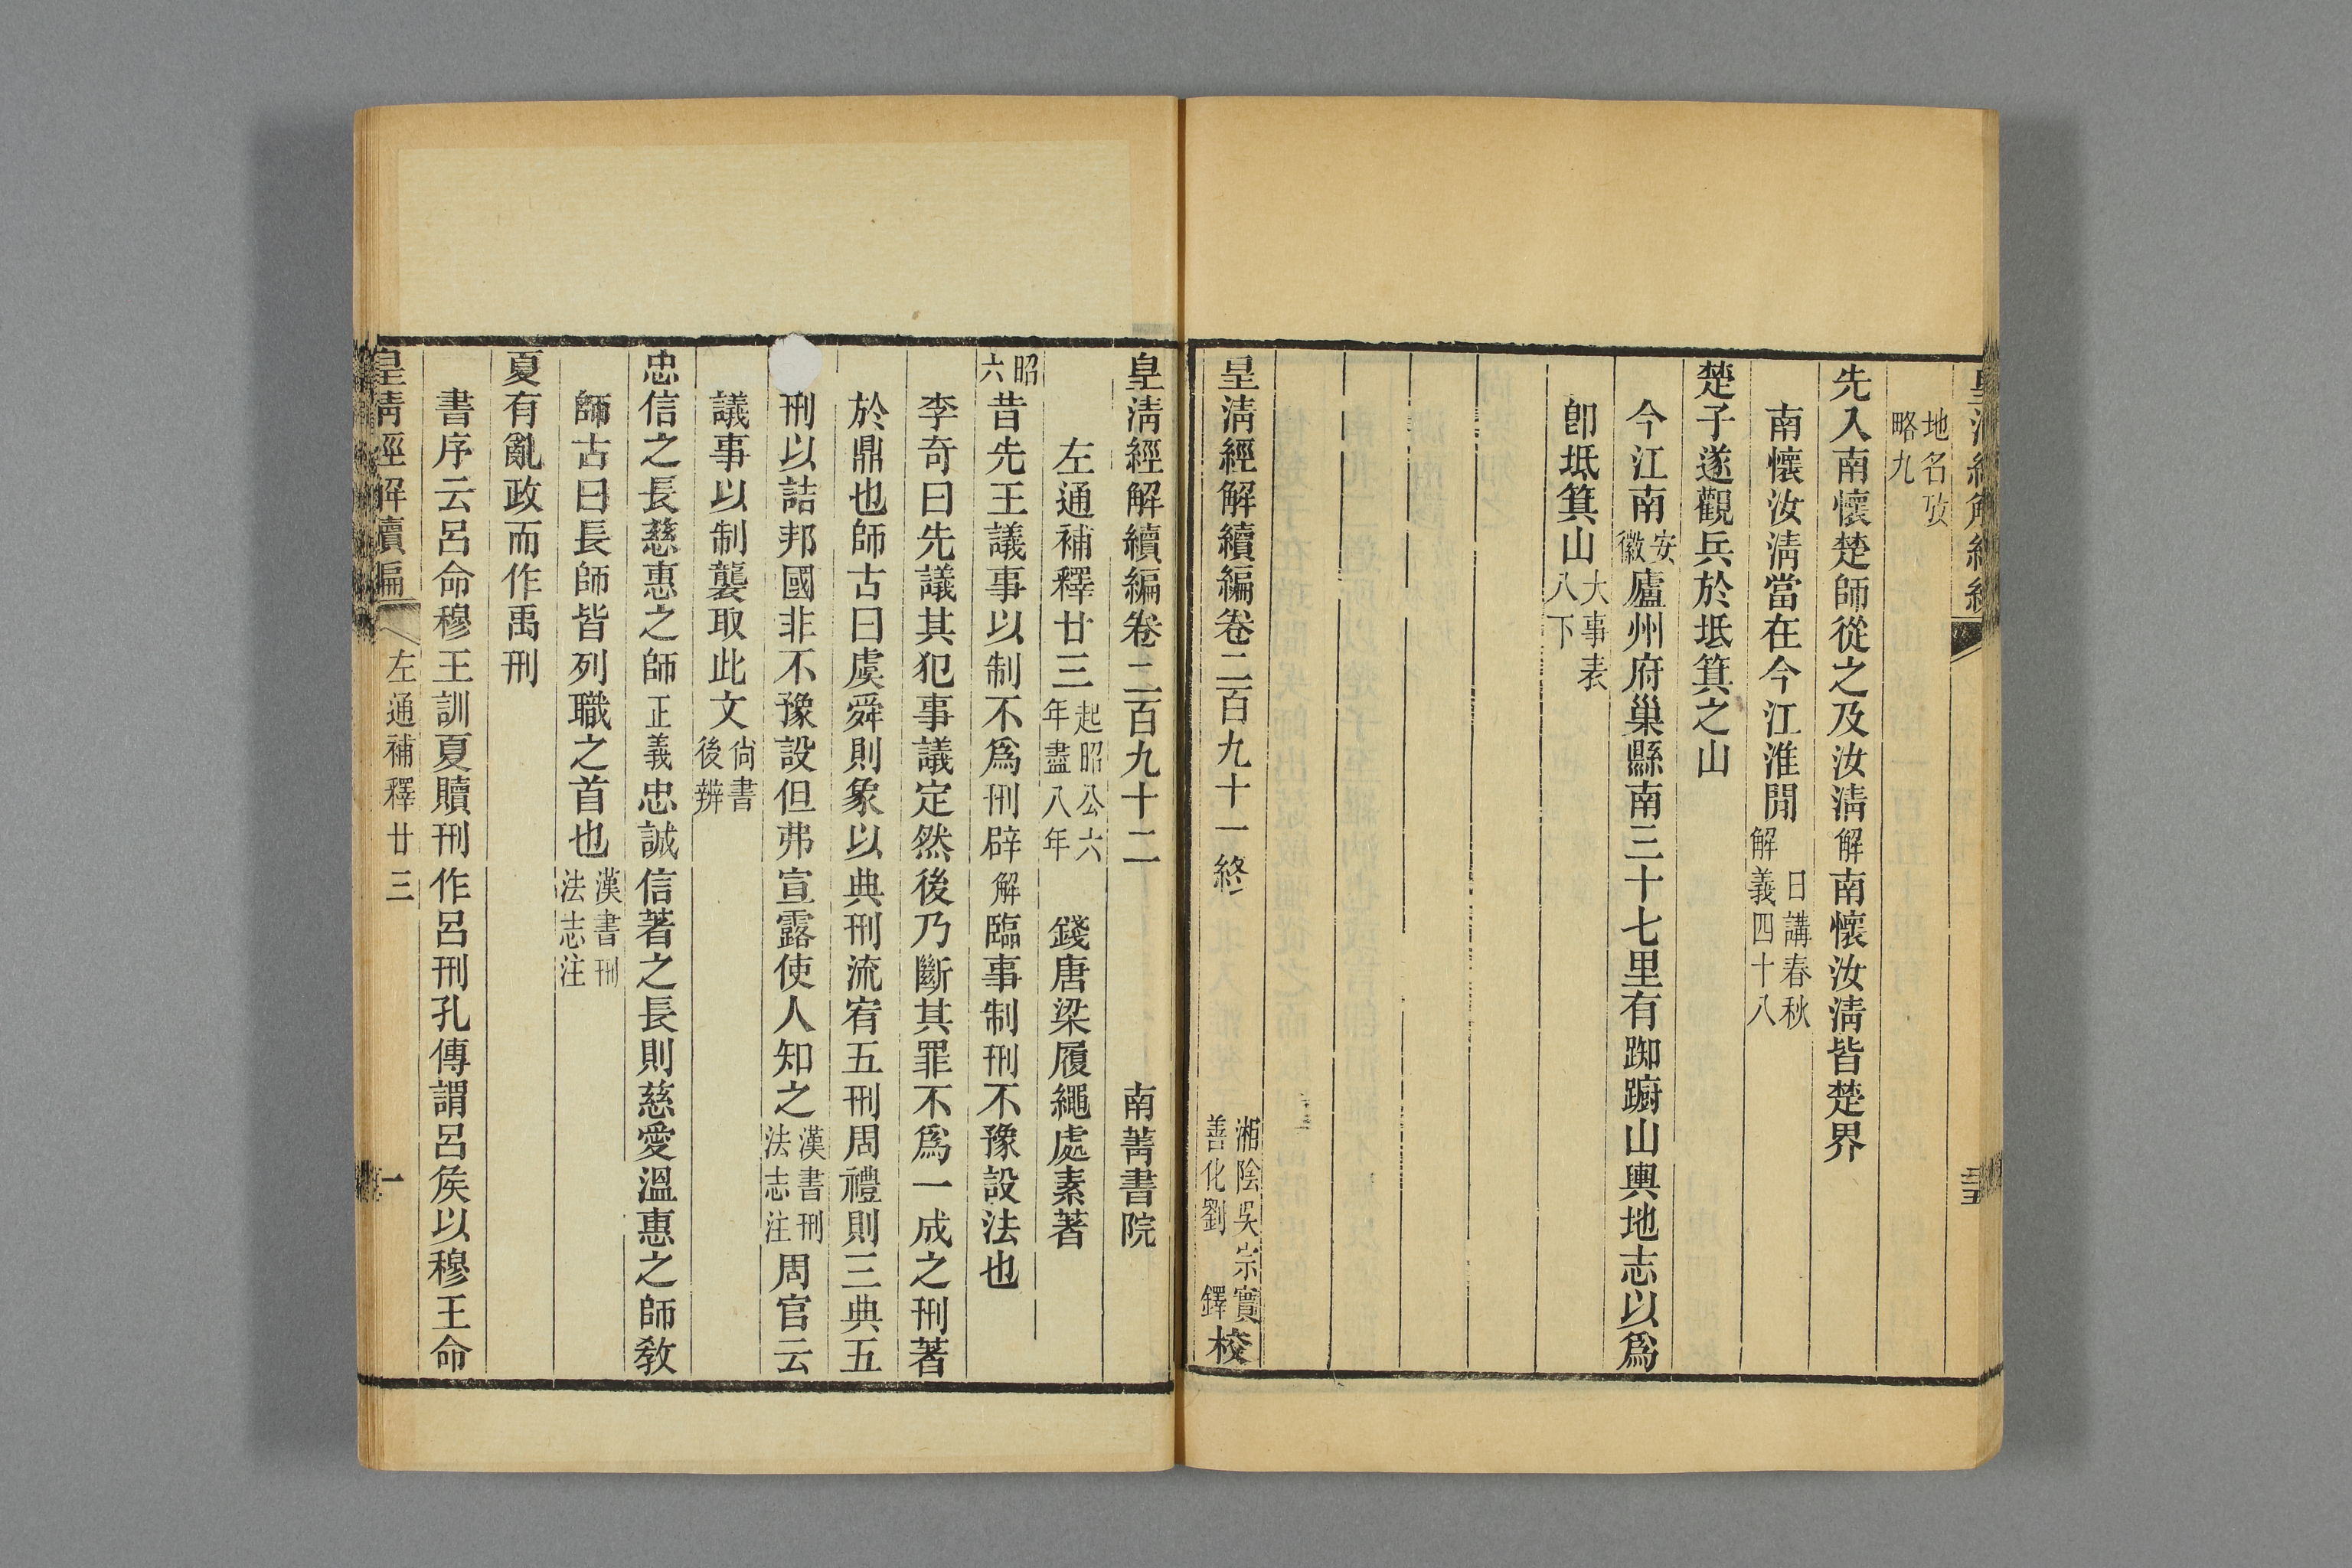 地名攷
略九
先入南懷楚師從之及汝淸解南懷汝淸皆楚界
南懷汝淸當在今江淮閒日講春秋
解義四十八
楚子遂觀兵於坻箕之山
今江南安徽廬州府巢縣南三十七里有踟躕山輿地志以爲
卽坻箕山大事表
八下
皇淸經解續編卷二百九十一終
湘陰吳宗實
善化劉鐸校
皇淸經解續編卷二百九十二 南菁書院
左通補釋廿三起昭公六
年盡八年 錢唐梁履繩處素著
昭六昔先王議事以制不爲刑辟解臨事制刑不豫設法也
李奇曰先議其犯事議定然後乃斷其罪不爲一成之刑著
於鼎也師古曰虞舜則象以典刑流宥五刑周禮則三典五
刑以詰邦國非不豫設但弗宣露使人知之漢書刑
法志注周官云
議事以制襲取此文尙書
後辨
忠信之長慈惠之師正義忠誠信著之長則慈愛溫惠之師敎
師古曰長師皆列職之首也漢書刑
法志注
夏有亂政而作禹刑
書序云呂命穆王訓夏贖刑作呂刑孔傳謂呂矦以穆王命
皇淸經解續編 左通補釋廿三 一